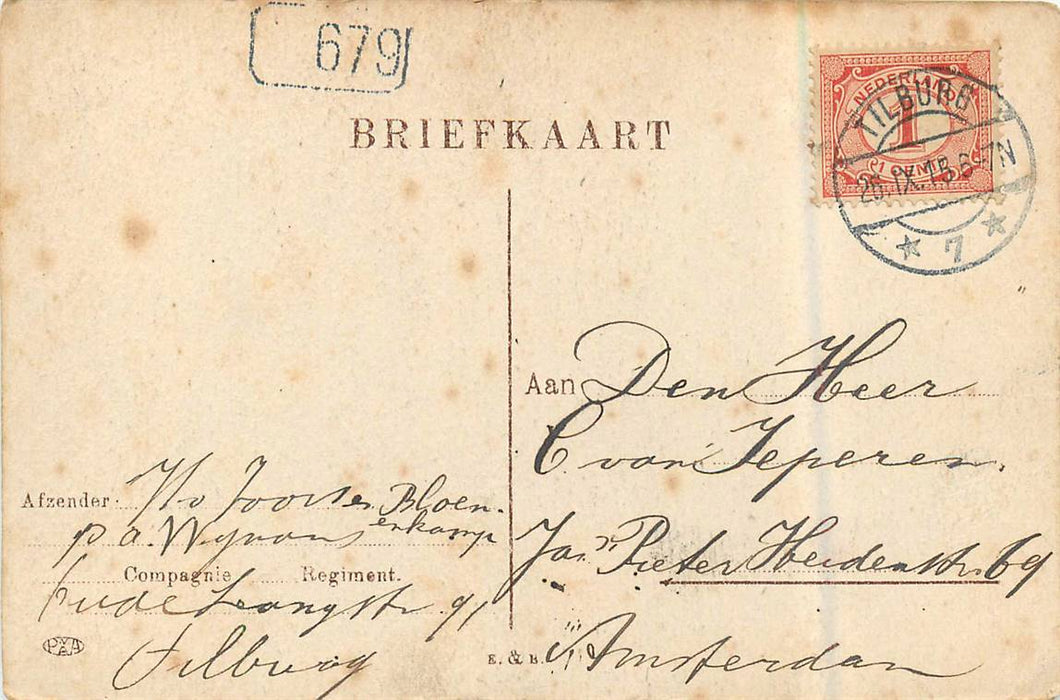 679
BRIEFKAART
NEDERLAND
1
1 CENT
TILBURG
26.IX.15.6-7N
7
Aan Den Heer
C. van Ieperen.
Jan Pieter Heidenstr. 69
Amsterdam
Afzender: Joosten Bloem-
enkamp
p a. Wynans
Compagnie Regiment.
Oude Langstr. 91
Tilburg
E. & B.